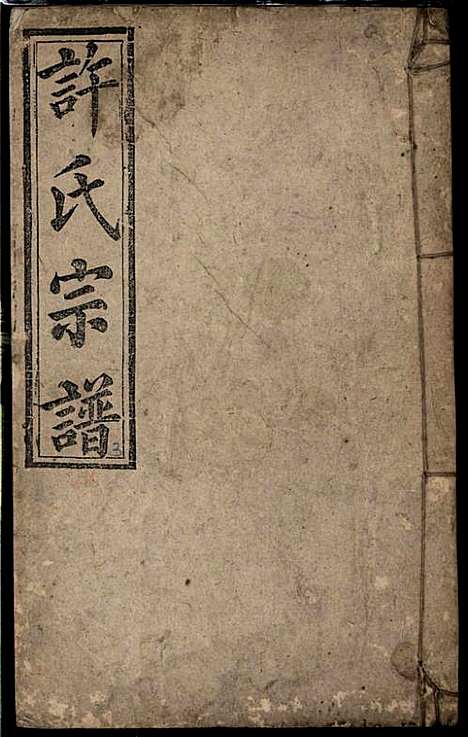 許氏宗譜